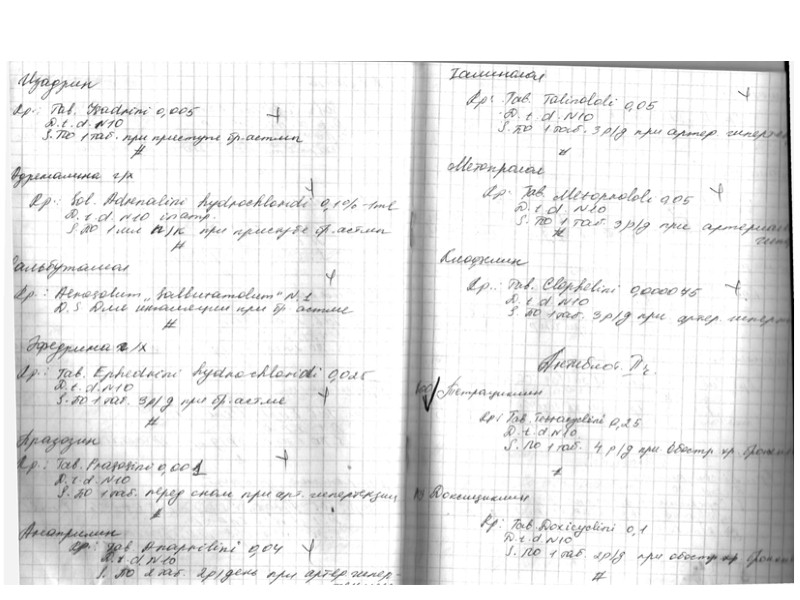 Изадрин
Rp.: Tab. Isadrini 0,005
D.t.d. N10
S. По 1 таб. при приступе бр. астмы
#
Адреналина г/х
Rp.: Sol. Adrenalini hydrochloridi 0,1% - 1ml
D.t.d. N10 in amp.
S. По 1 мл п/к при приступе бр. астмы
#
Сальбутамол
Rp.: Aerosolum „Salbutamolum" N.1
D.S. Для ингаляции при бр астме
#
Эфедрина г/х
Rp.: Tab. Ephedrini hydrochloridi 0,025
D.t.d. N10
S. По 1 таб. 3 р/д при бр. астме
#
Празозин
Rp.: Tab. Prazosini 0,001
D.t.d. N10
S. По 1 таб. перед сном при арт. гипертензии
#
Анаприлин
Rp.: Tab. Anaprilini 0,04
D.t.d. N10
S. По 2 таб. 2р/день при артер. гипер-
Талинолол
Rp: Tab. Talinololi 0,05
D.t.d. N10
S. По 1 таб. 3 р/д при артер. гиперте
#
Метопролол
Rp: Tab. Metoprololi 0,05
D.t.d. N10
S. По 1 таб 3 р/д при артериал
#
Клофелин
Rp.: Tab. Clophelini 0,000075
D.t.d. N10
S. По 1 таб. 3 р/д при артер. гиперт
#
Антибиот. IIч.
Тетрациклин
Rp: Tab. Tetracyclini 0,25
D.t.d. N10
S. По 1 таб. 4 р/д при обостр. хр. бронхи
#
Доксициклин
Rp: Tab. Doxicyclini 0,1
D.t.d. N10
S. По 1 таб 2р/д при обостр хр. бронхи
#